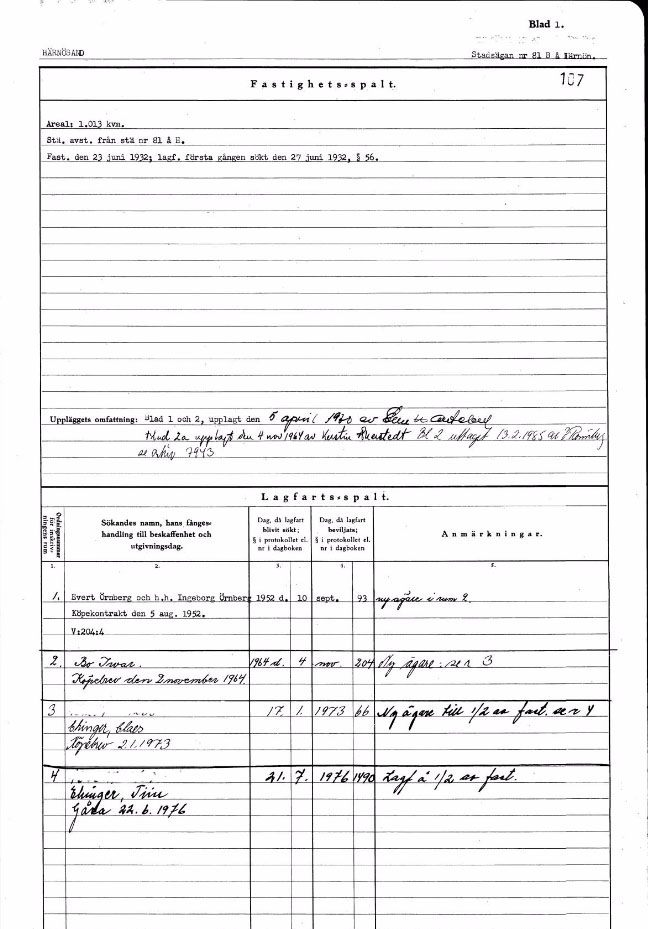 Blad 1.
HÄRNÖSAND
Stadsägan nr 81 B å Härnön.
Fastighets-spalt.
107
Areal: 1.013 kvm.
Stä. avst. från stä nr 81 å H.
Fast. den 23 juni 1932; lagf. första gången sökt den 27 juni 1932, § 56.
Uppläggets omfattning: Blad 1 och 2, upplagt den 5 april 1960 av
Blad 2a upplagt den 4 nov 1964 av Kerstin Bl 2 uttaget 13.2.1985 av
se arkiv 7943
Lagfarts-spalt.
Ordningsnummer för inskrivningens rum
Sökandes namn, hans fånges-
handling till beskaffenhet och
utgivningsdag.
Dag, då lagfart
blivit sökt;
§ i protokollet el.
nr i dagboken
Dag, då lagfart
beviljats;
§ i protokollet el.
nr i dagboken
Anmärkningar.
1. 2. 3. 4. 5.
1. Evert Örnberg och h.h. Ingeborg Örnberg 1952 d. 10 sept. 93 ny ägare i rum 2.
Köpekontrakt den 5 aug. 1952.
V:204:4
2. Bo Iwar. 1964 d. 4 nov. 204 Ny ägare: se r 3
Köpebrev den 2 november 1964.
3 17. 1. 1973 66 Ny ägare till 1/2 av fast. se r 4
Ehinger, Claes
Köpebrev 2.1.1973
4 21. 7. 1976 1490 Lagf å 1/2 av fast.
Ehinger, Tiiu
Gåva 22.6.1976